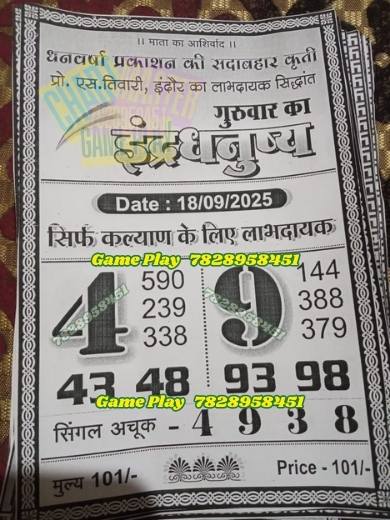 ।। माता का आशिर्वाद ।।
धनवर्षा प्रकाशन की सदाबहार कृती
प्रो. एस.तिवारी, इंदौर का लाभदायक सिद्धांत
गुरुवार का
इंद्रधनुष्य
Date : 18/09/2025
सिर्फ कल्याण के लिए लाभदायक
Game Play 7828958451
4 590 9 144
239 388
338 379
7828958451 7828958451
43 48 93 98
Game Play 7828958451
सिंगल अचूक - 4 9 3 8
मुल्य 101/- Price - 101/-